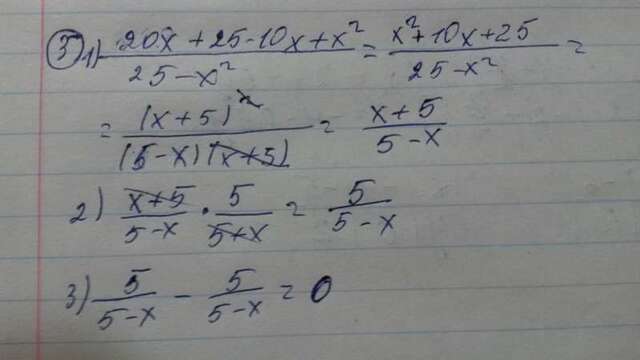 ⑤ 1) (20x + 25 - 10x + x²)/(25 - x²) = (x² + 10x + 25)/(25 - x²) =
= (x + 5)²/((5 - x)(x + 5)) = (x + 5)/(5 - x)
2) (x + 5)/(5 - x) · 5/(5 + x) = 5/(5 - x)
3) 5/(5 - x) - 5/(5 - x) = 0